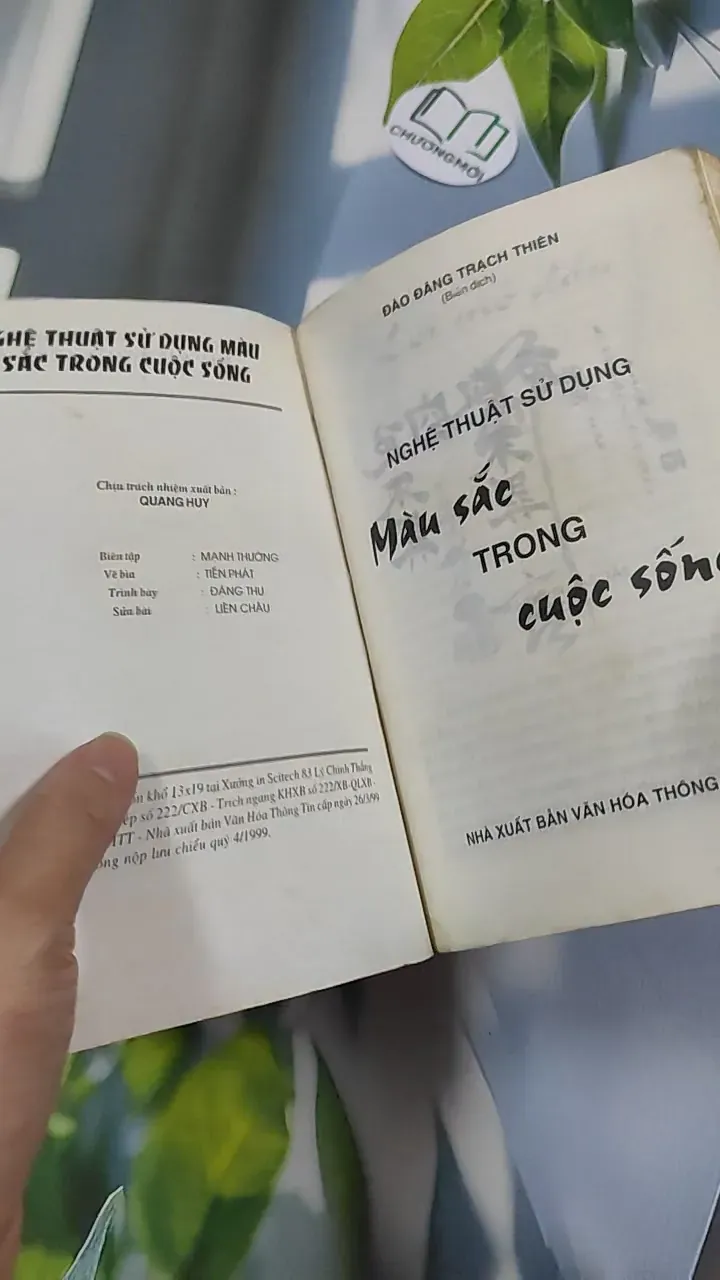 CHƯƠNGMỚI
GHỆ THUẬT SỬ DỤNG MÀU
SẮC TRONG CUỘC SỐNG
Chịu trách nhiệm xuất bản :
QUANG HUY
Biên tập : MẠNH THƯỜNG
Vẽ bìa : TIẾN PHÁT
Trình bày : ĐĂNG THU
Sửa bài : LIÊN CHÂU
khổ 13x19 tại Xưởng in Scitech 83 Lý Chính Thắng
ép số 222/CXB - Trích ngang KHXB số 222/XB-QLXB-
TT - Nhà xuất bản Văn Hóa Thông Tin cấp ngày 26/3/99
ong nộp lưu chiểu quý 4/1999.
ĐÀO ĐĂNG TRẠCH THIÊN
(Biên dịch)
NGHỆ THUẬT SỬ DỤNG
Màu sắc
TRONG
cuộc sống
NHÀ XUẤT BẢN VĂN HÓA THÔNG